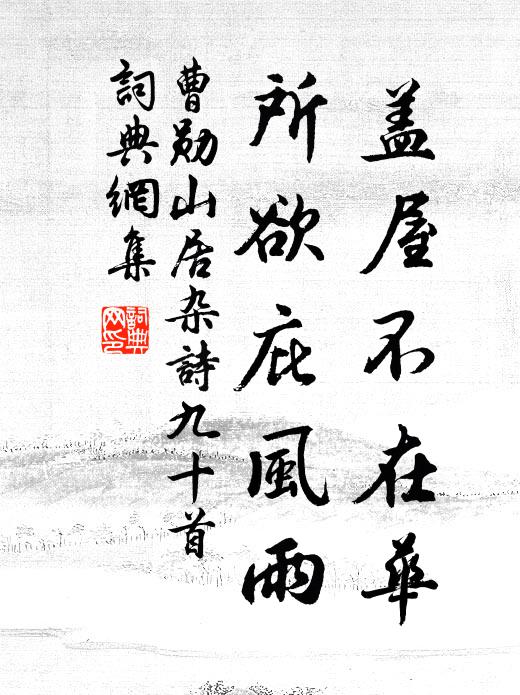 盖屋不在華
所欲庇風雨
曹勛山居杂詩九十首
詞典網集
詞典网印